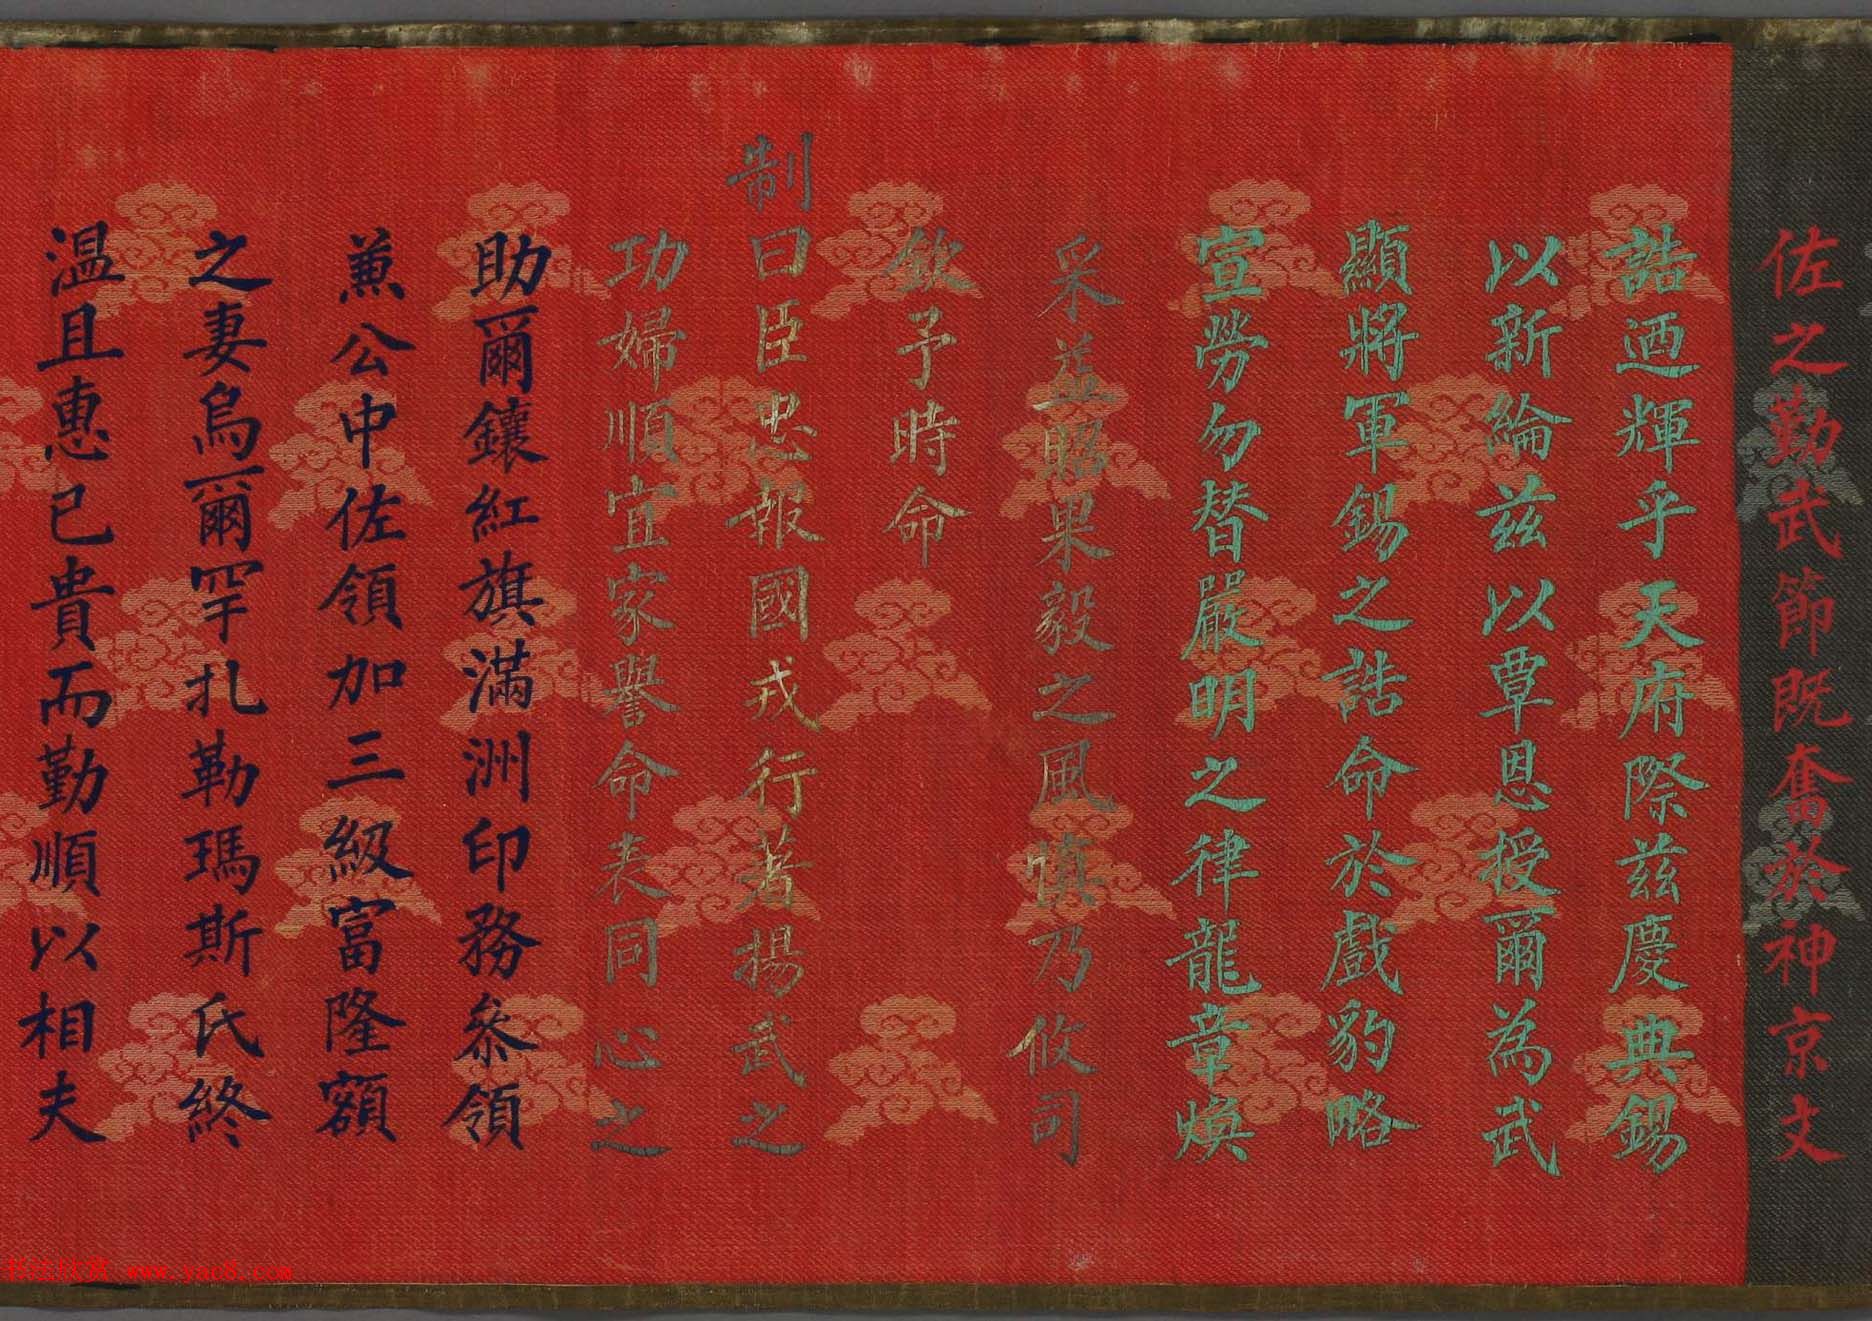 佐之勤武節既奮於神京文
誥迺輝乎天府際茲慶典錫
以新綸茲以覃恩授爾為武
顯將軍錫之誥命於戲豹略
宣勞勿替嚴明之律龍章煥
采益昭果毅之風慎乃攸司
欽予時命
制曰臣忠報國戎行著揚武之
功婦順宜家譽命表同心之
助爾鑲紅旗滿洲印務參領
兼公中佐領加三級富隆額
之妻烏爾罕扎勒瑪斯氏終
溫且惠已貴而勤順以相夫
书法欣赏 www.yac8.com